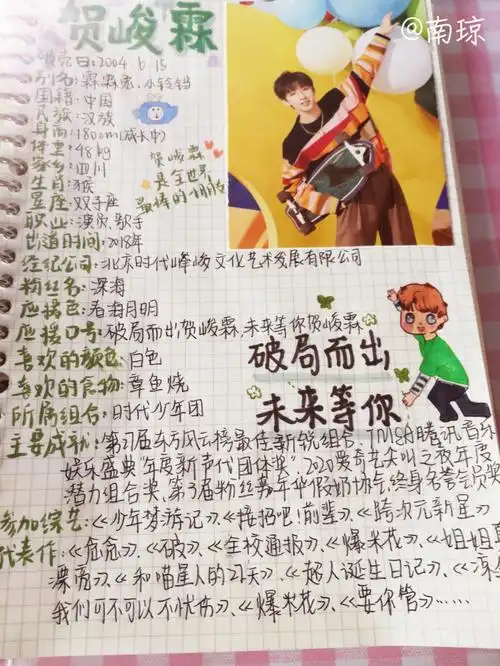 @南琼
贺峻霖
日:2004 6 15
别名:霖霖 小铃铛
国籍:中国
民族:汉族
身高:180cm(成长中)
体重:48kg
家乡:四川
生肖:猴
星座:双子座
职业:演员、歌手
出道时间:2018年
贺峻霖
是全世界
最棒的
经纪公司:北京时代峰峻文化艺术发展有限公司
粉丝名:深海
应援色:春海月明
应援口号:破局而出贺峻霖,未来等你贺峻霖
喜欢的颜色:白色
喜欢的食物:章鱼烧
所属组合:时代少年团
破局而出
未来等你
主要成就:第27届东方风云榜最佳新锐组合、TMEA腾讯音乐
娱乐盛典"年度新声代团体奖"、2020爱奇艺尖叫之夜年度
潜力组合奖、第3届粉丝嘉年华假奶协会终身名誉会员奖
参加综艺:《少年梦游记》、《接招吧!前辈》、《跨次元新星》
代表作:《念念》、《破》、《全校通报》、《爆米花》、《姐姐
漂亮》、《和喵星人的27天》、《超人诞生日记》、《凉
我们可不可以不忧伤》、《爆米花》、《要你管》……